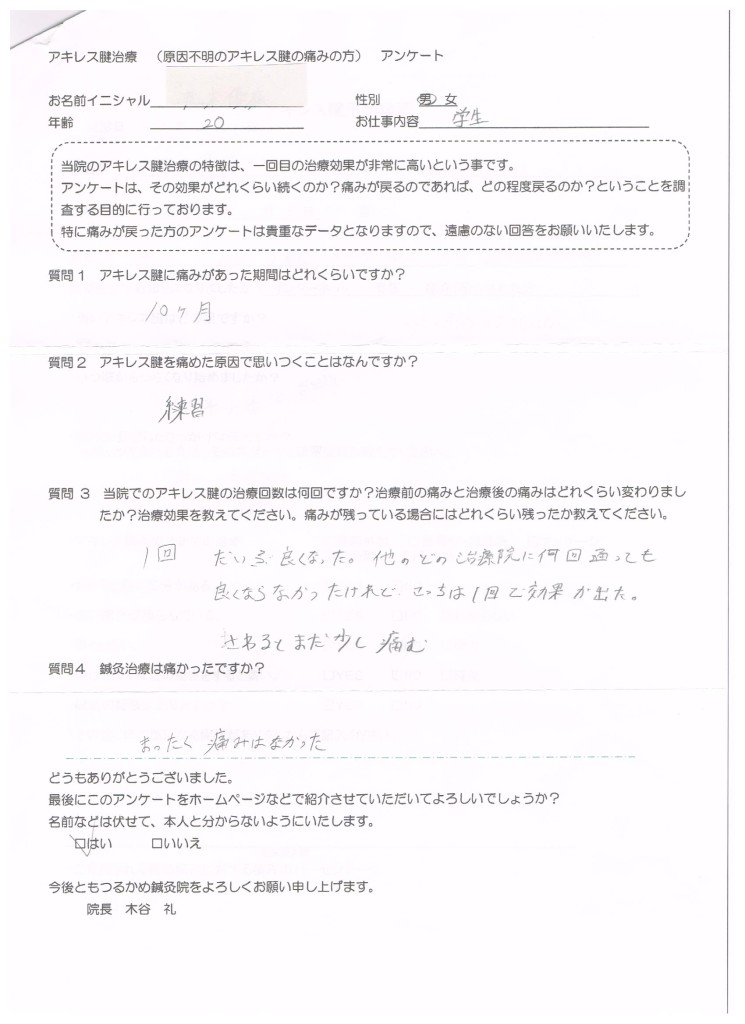 アキレス腱治療　（原因不明のアキレス腱の痛みの方）　アンケート
お名前イニシャル　性別　男　女
年齢　20　お仕事内容　学生
当院のアキレス腱治療の特徴は、一回目の治療効果が非常に高いという事です。
アンケートは、その効果がどれくらい続くのか？痛みが戻るのであれば、どの程度戻るのか？ということを調
査する目的に行っております。
特に痛みが戻った方のアンケートは貴重なデータとなりますので、遠慮のない回答をお願いいたします。
質問１　アキレス腱に痛みがあった期間はどれくらいですか？
10ヶ月
質問２　アキレス腱を痛めた原因で思いつくことはなんですか？
練習
質問 ３　当院でのアキレス腱の治療回数は何回ですか？治療前の痛みと治療後の痛みはどれくらい変わりまし
たか？治療効果を教えてください。痛みが残っている場合にはどれくらい残ったか教えてください。
1回　だいぶ良くなった。他のどの治療院に何回通っても
良くならなかったけれど こっちは1回で効果が出た。
さわるとまだ少し痛む
質問４　鍼灸治療は痛かったですか？
まったく痛みはなかった
どうもありがとうございました。
最後にこのアンケートをホームページなどで紹介させていただいてよろしいでしょうか？
名前などは伏せて、本人と分からないようにいたします。
☑はい　□いいえ
今後ともつるかめ鍼灸院をよろしくお願い申し上げます。
院長　木谷　礼